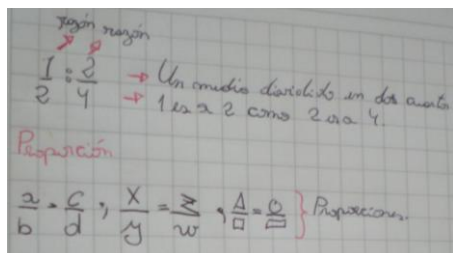 razón razón
1/2 : 2/4 → Un medio dividido en dos cuartos
→ 1 es a 2 como 2 es a 4.
Proporción
a/b = c/d ; x/y = z/w , △/□ = ○/▭ } Proporciones.